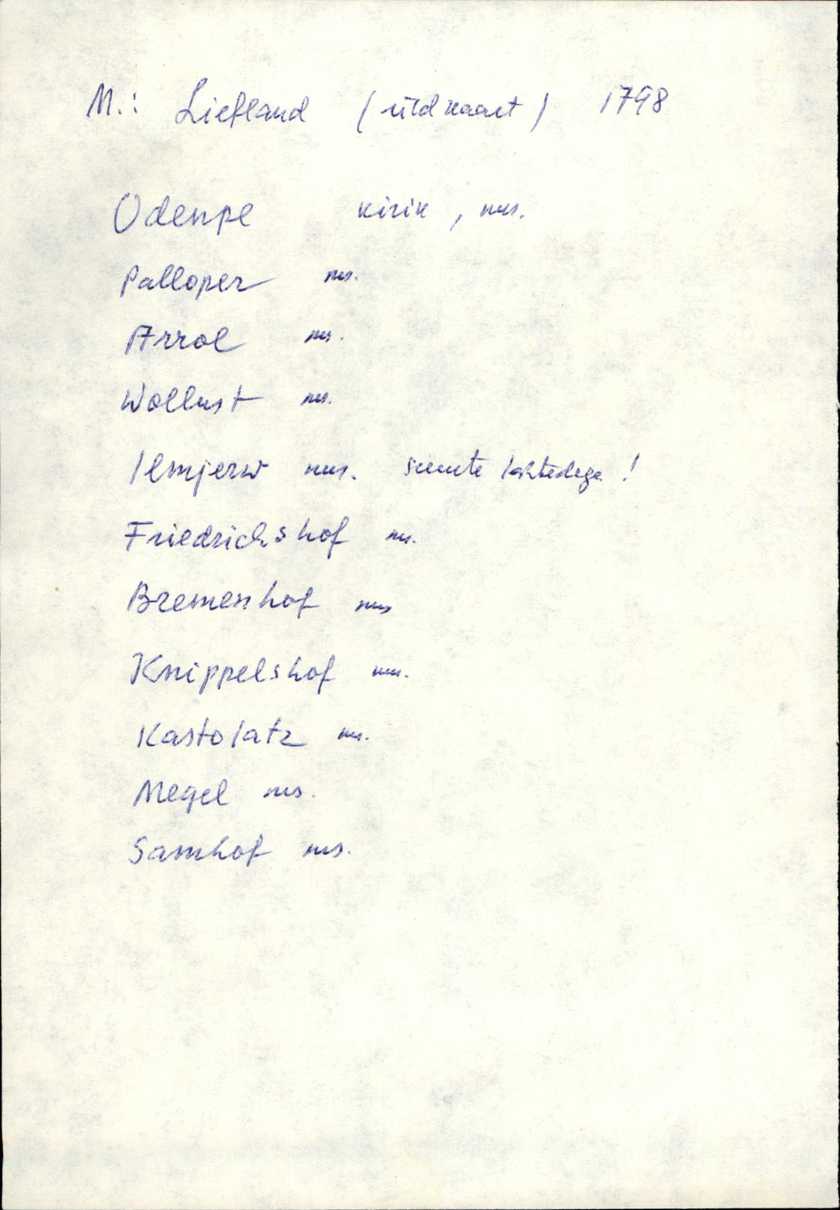 M.: Liefland (üldkaart) 1798
Odenpe kirik, ms.
Palloper ms.
Arrol ms.
Wollust ms.
Ilmjerw ms. suurte lahtedega!
Friedrichshof ms.
Bremenhof ms
Knippelshof ms.
Kastolatz ms.
Megel ms.
Samhof ms.